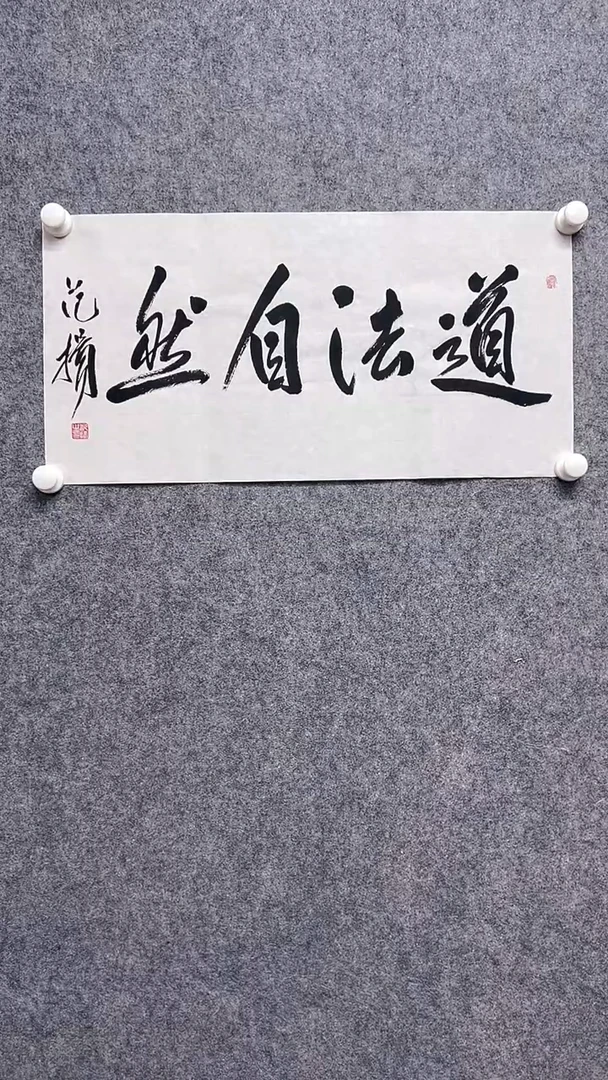 道法自然
范